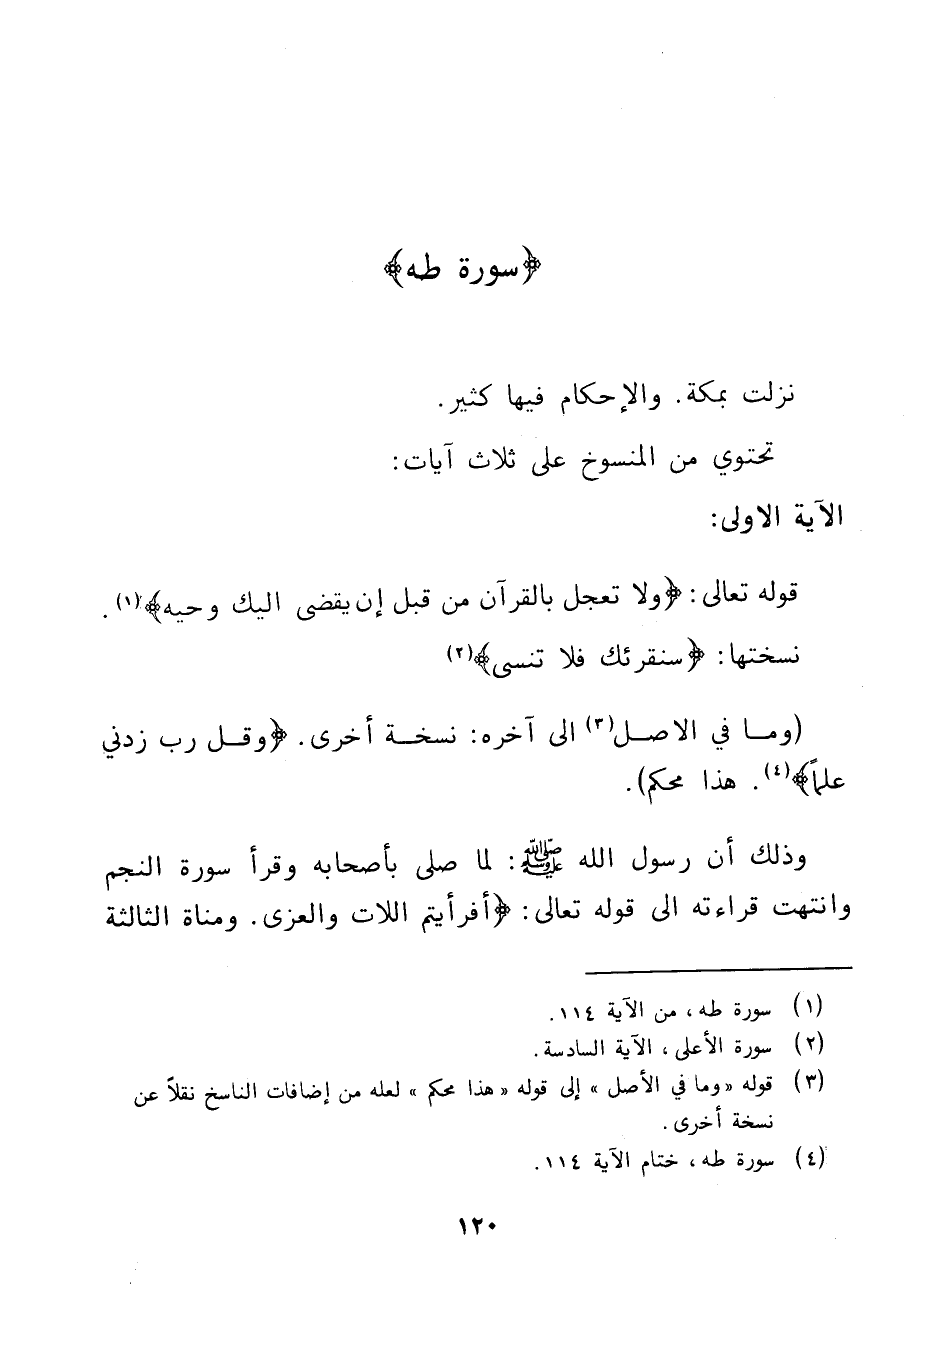 ﴿سورة طه﴾
نزلت بمكة. والإحكام فيها كثير.
تحتوي من المنسوخ على ثلاث آيات:
الآية الاولى:
قوله تعالى: ﴿ولا تعجل بالقرآن من قبل إن يقضى اليك وحيه﴾(١).
نسختها: ﴿سنقرئك فلا تنسى﴾(٢)
(وما في الاصل(٣) الى آخره: نسخة أخرى. ﴿وقل رب زدني
علماً﴾(٤). هذا محكم).
وذلك أن رسول الله ﷺ: لما صلى بأصحابه وقرأ سورة النجم
وانتهت قراءته الى قوله تعالى: ﴿أفرأيتم اللات والعزى. ومناة الثالثة
(١) سورة طه، من الآية ١١٤.
(٢) سورة الأعلى، الآية السادسة.
(٣) قوله «وما في الأصل» إلى قوله «هذا محكم» لعله من إضافات الناسخ نقلاً عن
نسخة أخرى.
(٤) سورة طه، ختام الآية ١١٤.
١٢٠